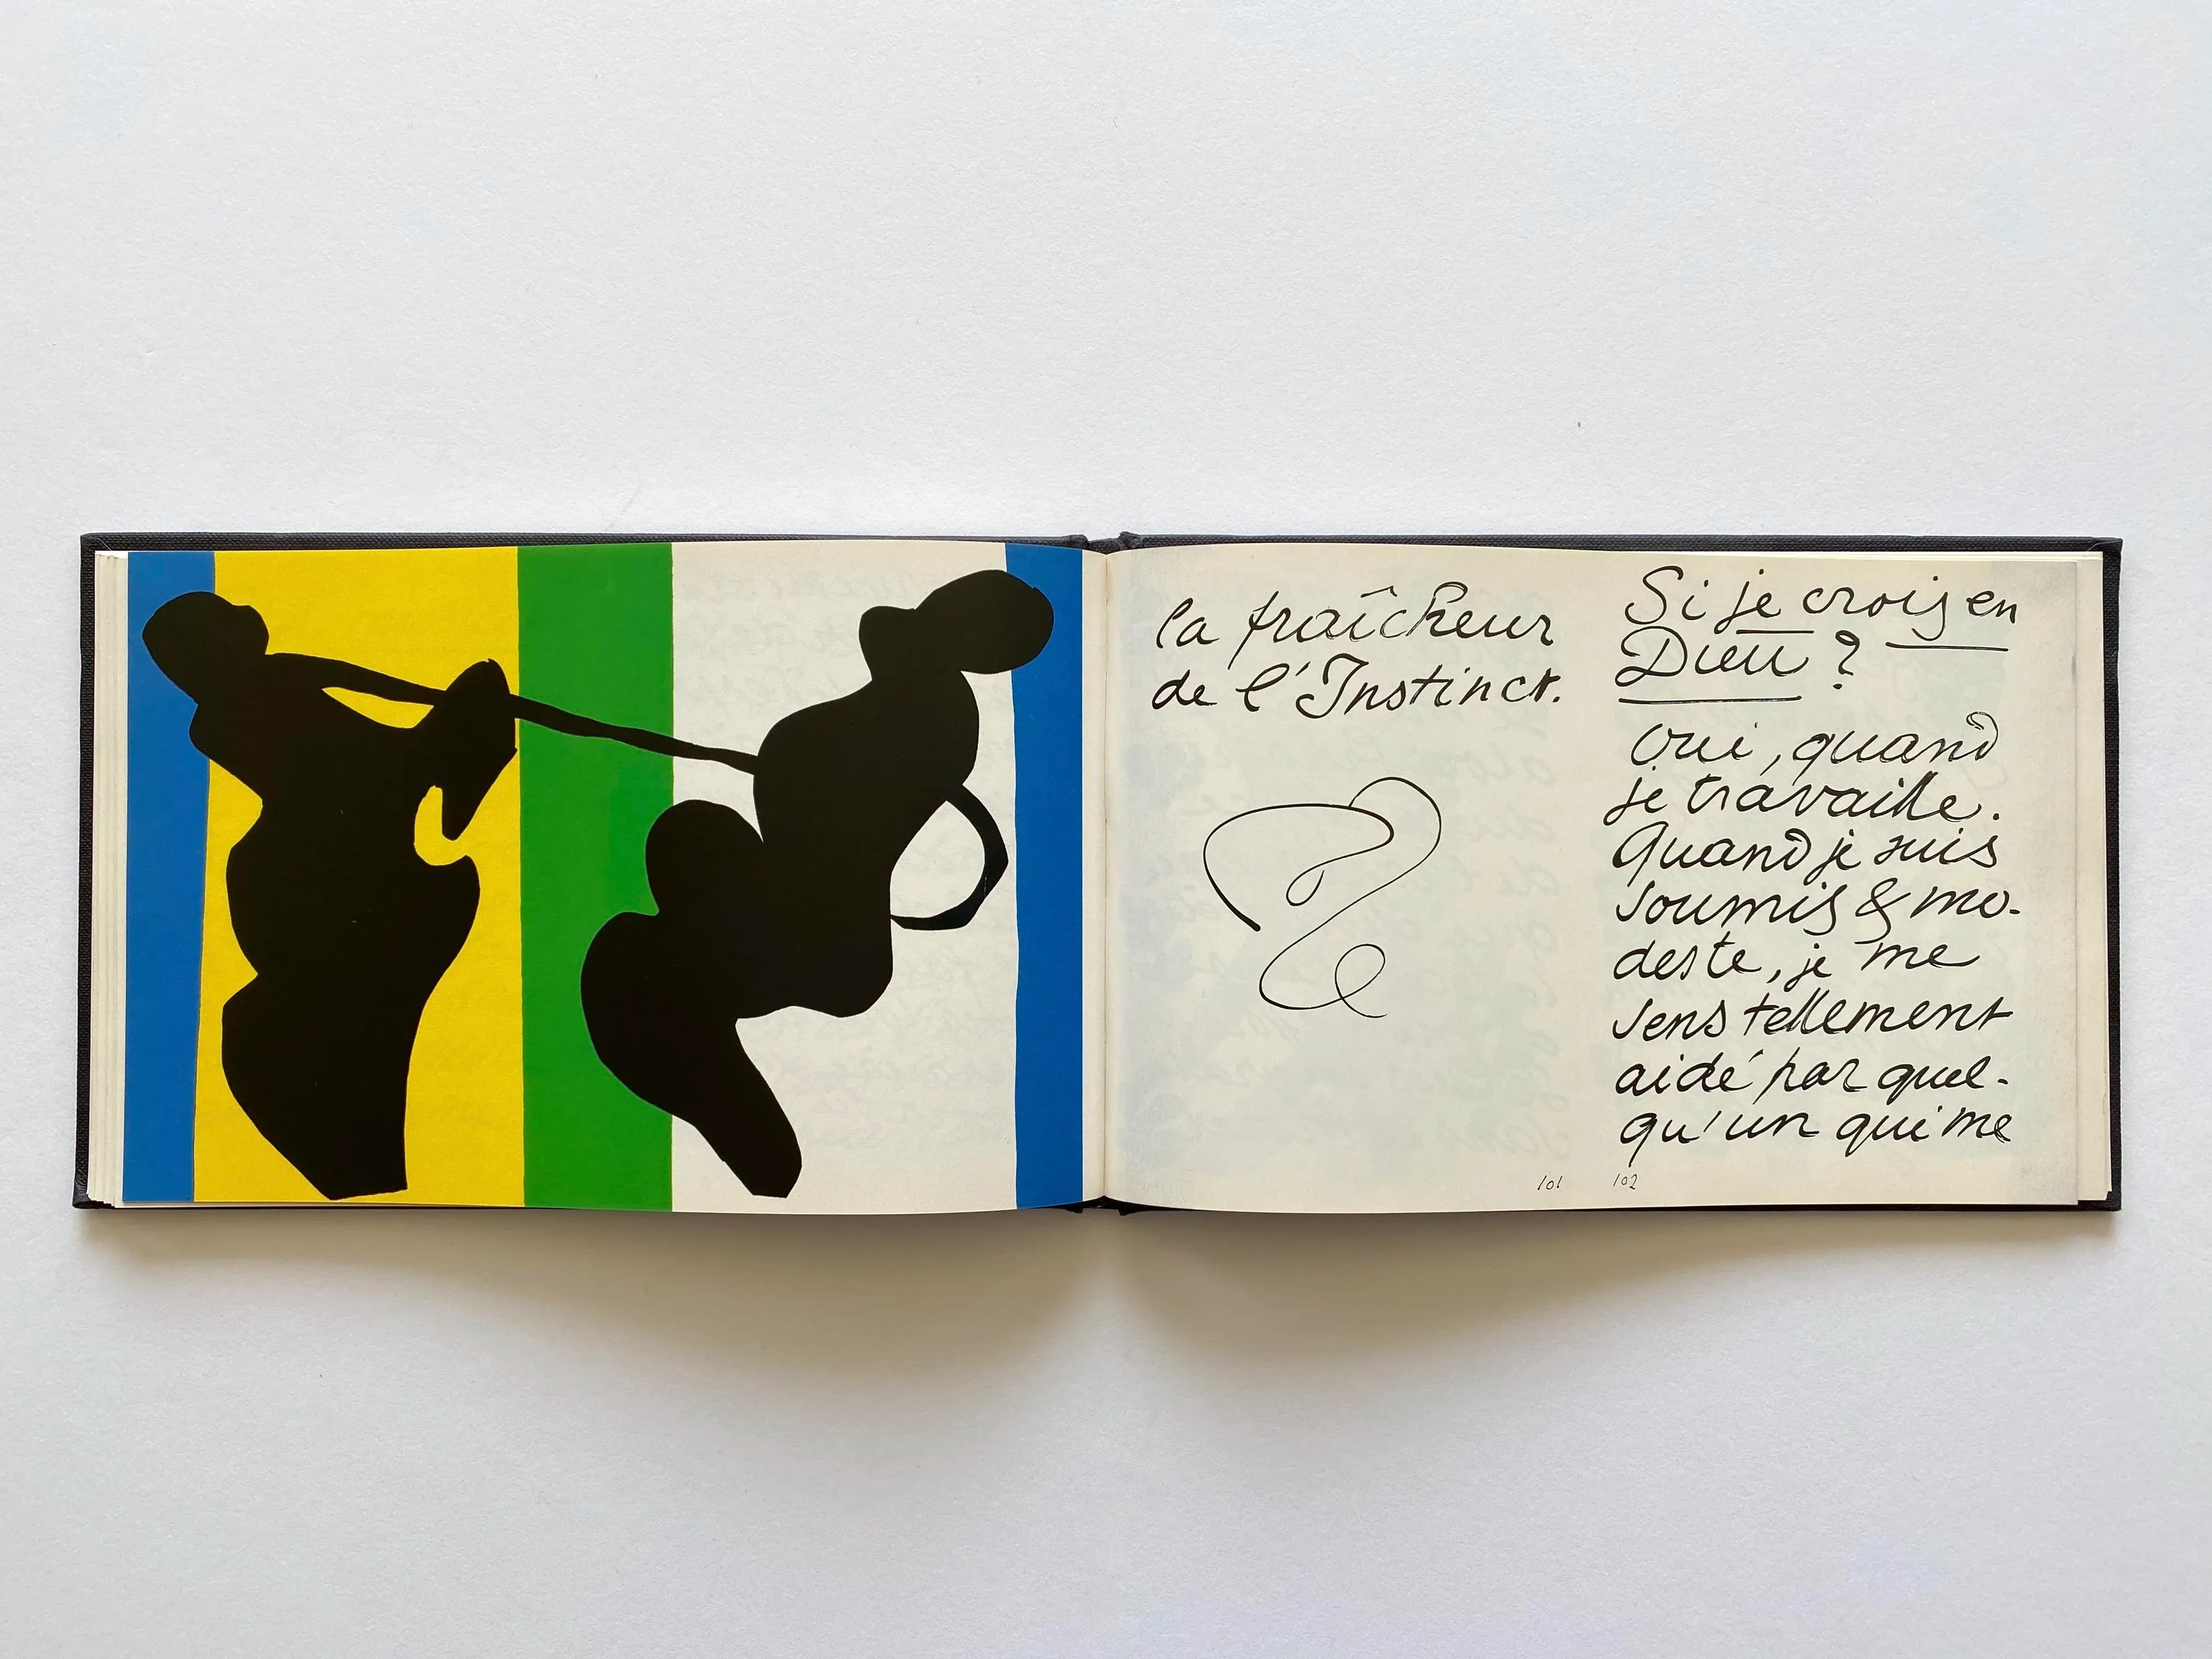 la fraîcheur
de l'Instinct.
101
Si je crois en
Dieu ?
Oui, quand
je travaille.
Quand je suis
soumis & mo-
deste, je me
sens tellement
aidé par quel-
qu'un qui me
102